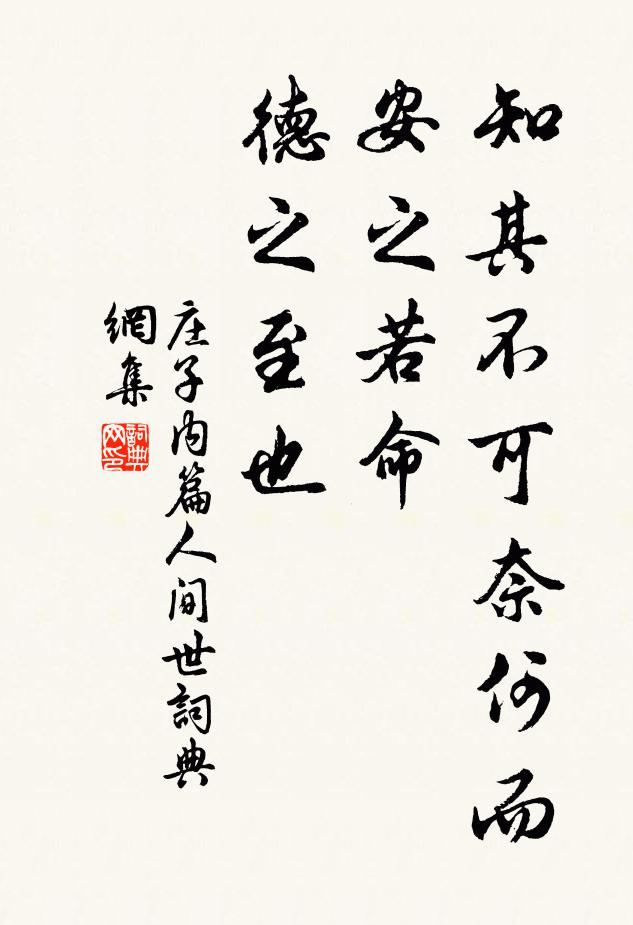 知其不可奈何而
安之若命
德之至也
庄子内篇人间世詞典
網集
詞典
网印